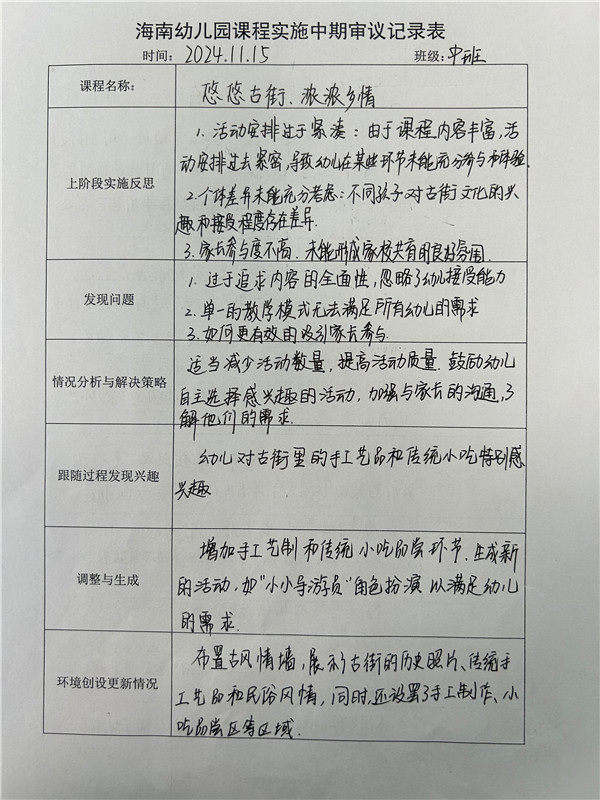 海南幼儿园课程实施中期审议记录表
时间： 2024.11.15 班级：中班
课程名称：
悠悠古街、浓浓乡情
上阶段实施反思
1. 活动安排过于紧凑：由于课程内容丰富，活
动安排过去紧密，导致幼儿在某些环节未能充分参与和体验.
2. 个体差异未能充分考虑：不同孩子对古街文化的兴
趣和接受程度存在差异.
3. 家长参与度不高. 未能形成家校共育的良好氛围.
发现问题
1. 过于追求内容的全面性，忽略了幼儿接受能力
2. 单一的教学模式无法满足所有幼儿的需求
3. 如何更有效的吸引家长参与.
情况分析与解决策略
适当减少活动数量，提高活动质量. 鼓励幼儿
自主选择感兴趣的活动，加强与家长的沟通，了
解他们的需求.
跟随过程发现兴趣
幼儿对古街里的手工艺品和传统小吃特别感
兴趣
调整与生成
增加手工艺制和传统小吃品尝环节. 生成新
的活动，如“小小导游员”角色扮演以满足幼儿
的需求.
环境创设更新情况
布置古风情墙，展示古街的历史照片、传统手
工艺品和民俗风情，同时，还设置了手工制作、小
吃品尝区等区域.